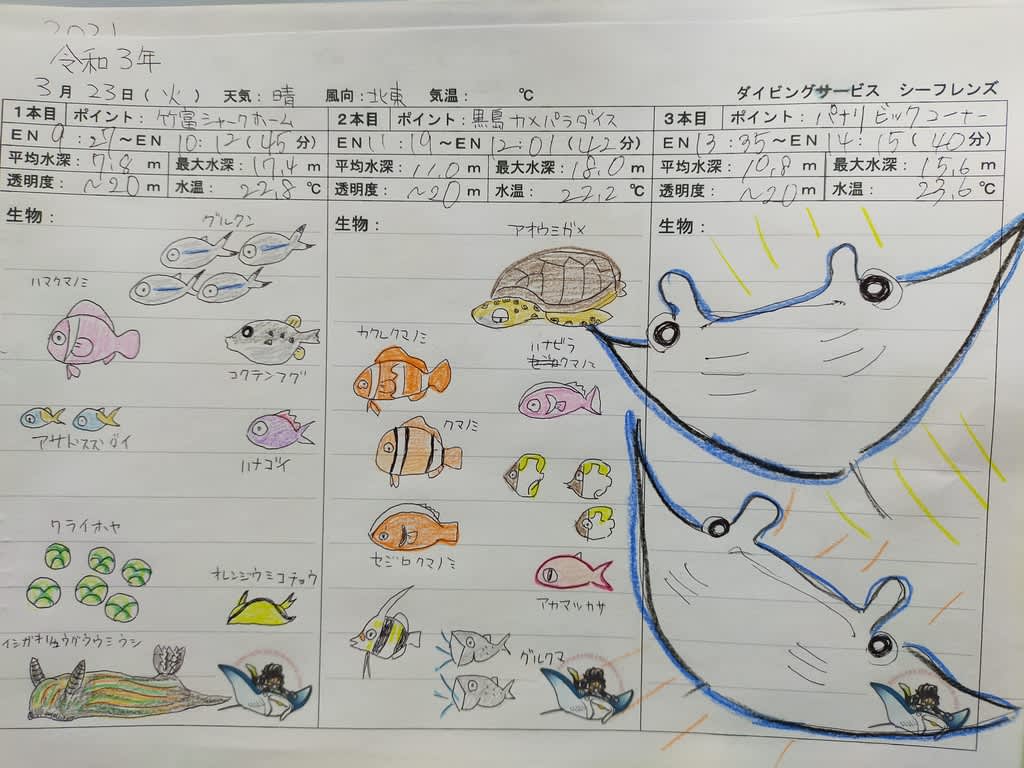 2021
令和3年
3月23日(火) 天気:晴 風向:北東 気温: ℃ ダイビングサービス シーフレンズ
1本目 ポイント:竹富シャークホーム
EN 9:27～EN 10:12(45分)
平均水深:7.8m 最大水深:17.4m
透明度:~20m 水温:22.8℃
生物:
グルクン
ハマクマノミ
コクテンフグ
アサドスズダイ
ハナゴイ
クライオホヤ
オレンジウミコチョウ
イシガキリュウグウウミウシ
2本目 ポイント:黒島カメパラダイス
EN 11:19～EN 12:01(42分)
平均水深:11.0m 最大水深:18.0m
透明度:~20m 水温:22.2℃
生物:
アオウミガメ
カクレクマノミ
ハナビラ
クマノミ
クマノミ
セジロクマノミ
アカマツカサ
グルクマ
3本目 ポイント:パナリビックコーナー
EN 13:35～EN 14:15(40分)
平均水深:10.8m 最大水深:15.6m
透明度:~20m 水温:23.6℃
生物: